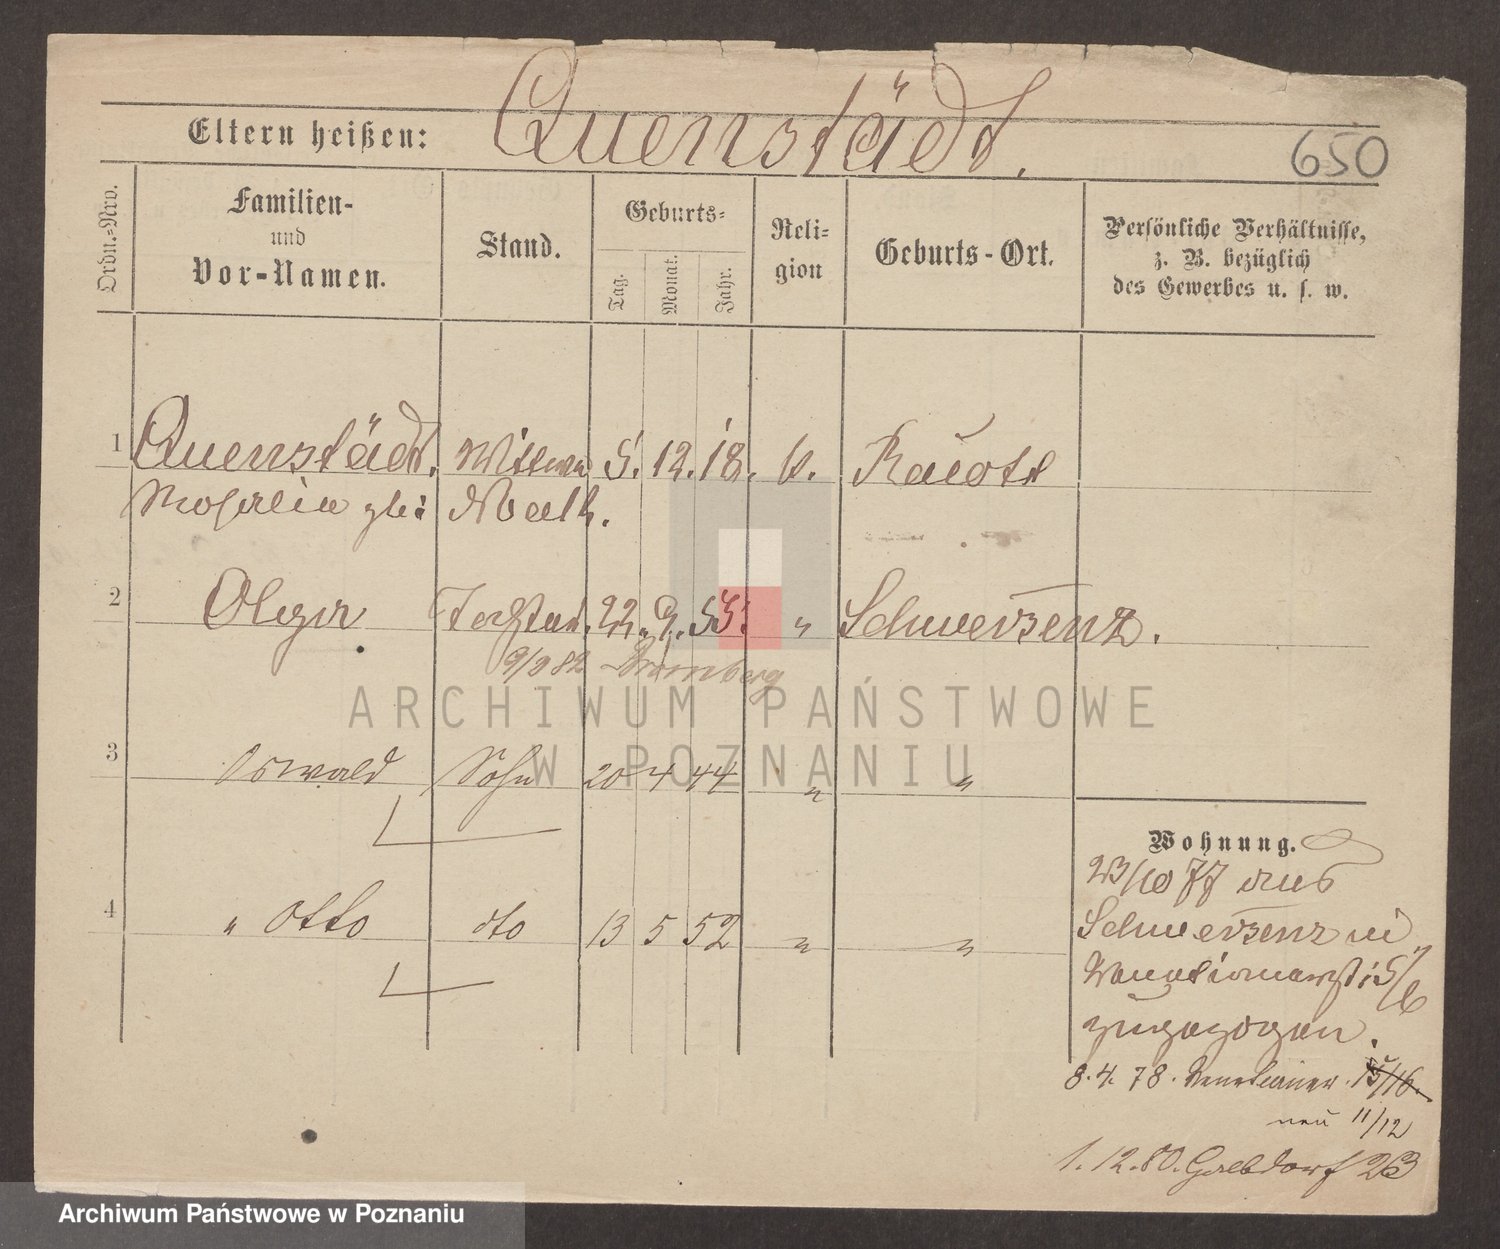 Eltern heißen: Quenstädt. 650
Ordn.-Nro.
Familien-
und
Vor-Namen.
Stand.
Geburts-
Tag.
Monat.
Jahr.
Reli-
gion
Geburts-Ort.
Persönliche Verhältnisse,
z. B. bezüglich
des Gewerbes u. s. w.
1 Quenstädt. Wittwe 5. 12. 18.
Rosalie geb: Nath.
2 Olga Tochter. 22. 9. 55. " Schwersenz.
9/9 82 Bromberg
3 Oswald Sohn 20 4 44 " "
4 " Otto dto 13 5 52 " "
Wohnung.
23/10 77 aus
Schwersenz in
5/6
zugezogen.
8. 4. 78. Venetianer. 15/16.
neu 11/12
1. 12. 80. Grabdorf 23
ARCHIWUM PAŃSTWOWE
W POZNANIU
Archiwum Państwowe w Poznaniu